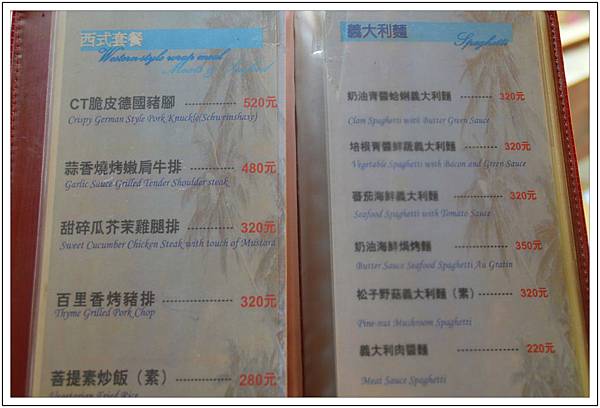 西式套餐
Western-style wrap meal
Meats & Seafood
CT脆皮德國豬腳 ------------ 520元
Crispy German Style Pork Knuckle(Schweinshaxe)
蒜香燒烤嫩肩牛排 ---------- 480元
Garlic Sauce Grilled Tender Shoulder steak
甜碎瓜芥茉雞腿排 ---------- 320元
Sweet Cucumber Chicken Steak with touch of Mustard
百里香烤豬排 -------------- 320元
Thyme Grilled Pork Chop
菩提素炒飯（素）---------- 280元
Vegetarian Fried Rice
義大利麵
Spaghetti
奶油青醬蛤蜊義大利麵 -------- 320元
Clam Spaghetti with Butter Green Sauce
培根青醬鮮蔬義大利麵 -------- 320元
Vegetable Spaghetti with Bacon and Green Sauce
蕃茄海鮮義大利麵 ---------- 320元
Seafood Spaghetti with Tomato Sauce
奶油海鮮焗烤麵 ------------ 350元
Butter Sauce Seafood Spaghetti Au Gratin
松子野菇義大利麵（素）-------- 320元
Pine-nut Mushroom Spaghetti
義大利肉醬麵 ------------ 220元
Meat Sauce Spaghetti